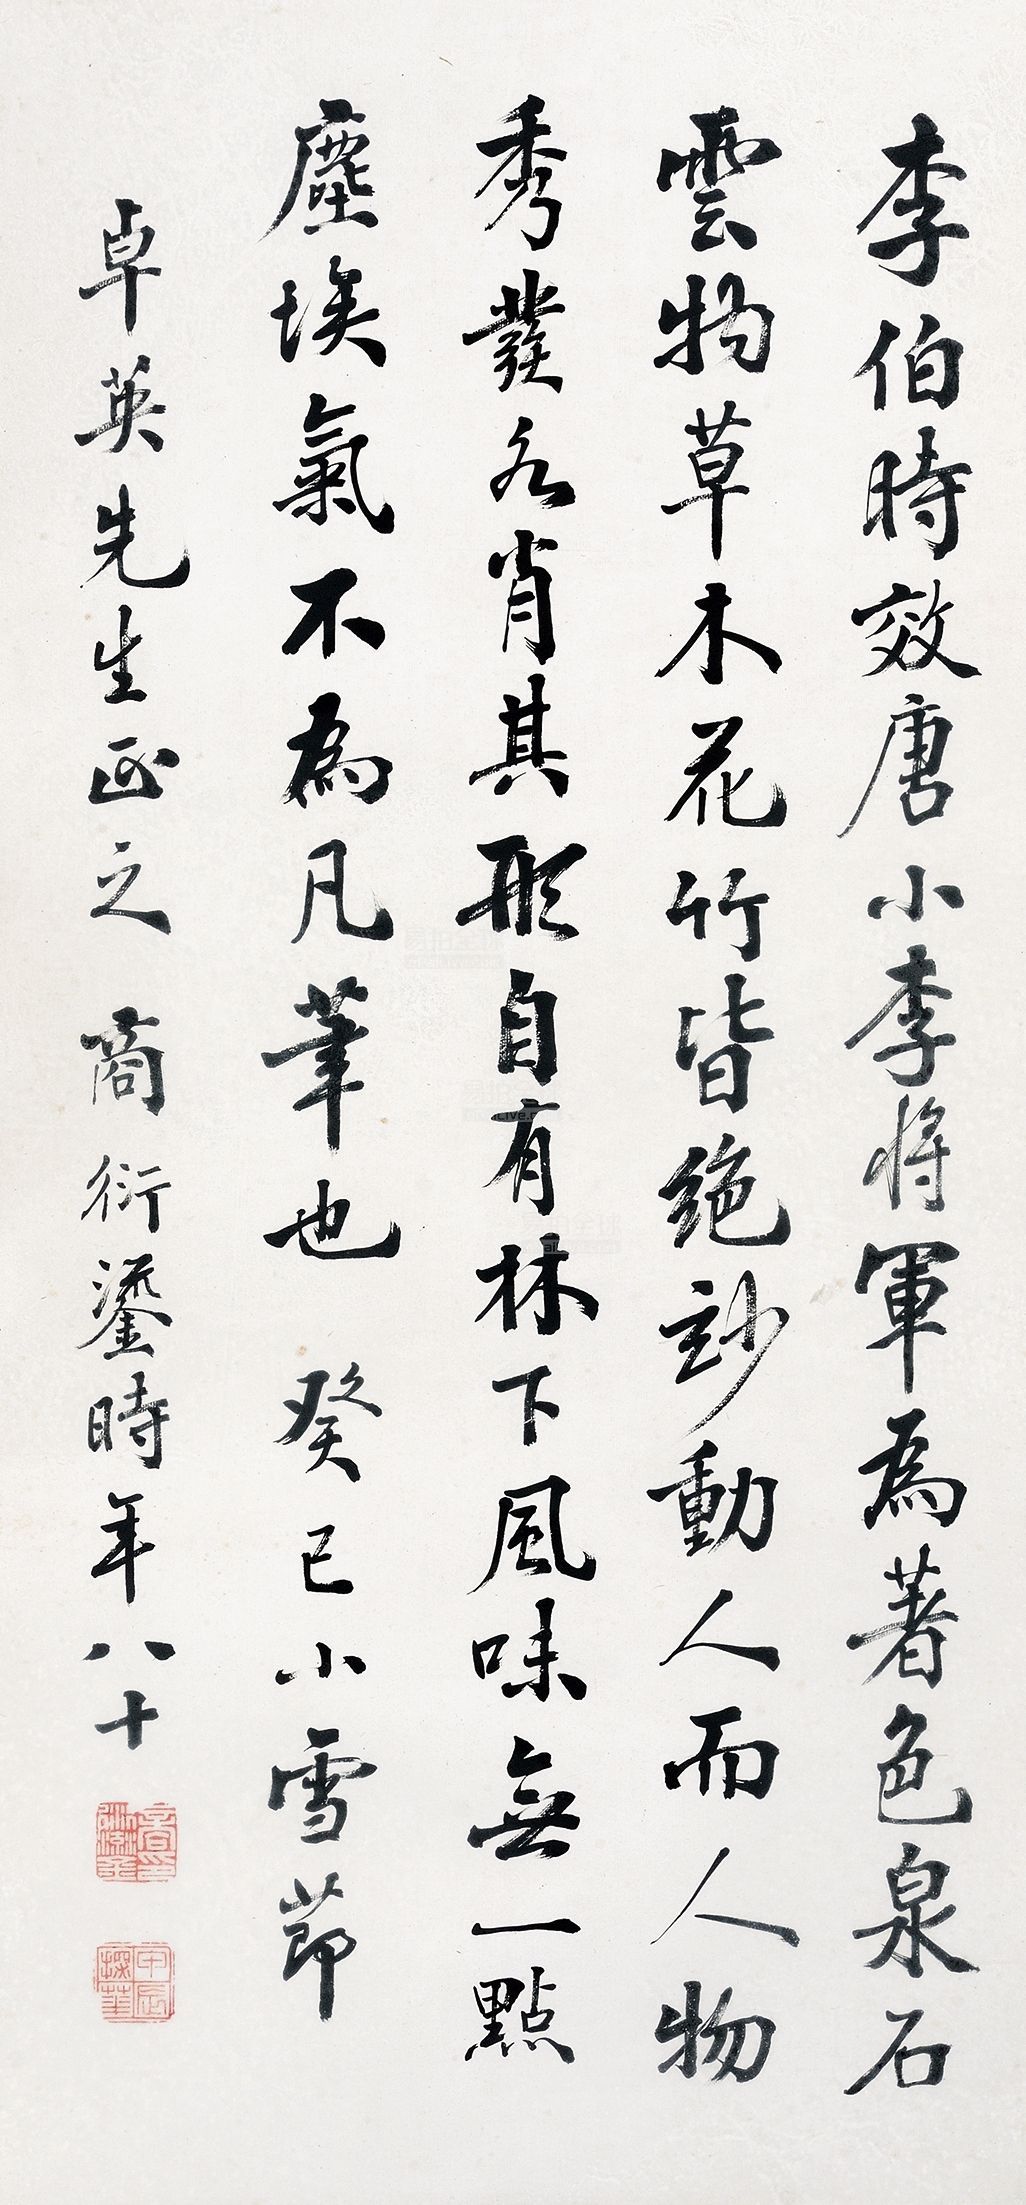 李伯時效唐小李將軍為著色泉石
雲物草木花竹皆絕妙動人而人物
秀發各肖其形自有林下風味無一點
塵埃氣不為凡筆也 癸巳小雪節
卓英先生正之 商衍鎏時年八十
甲辰探花